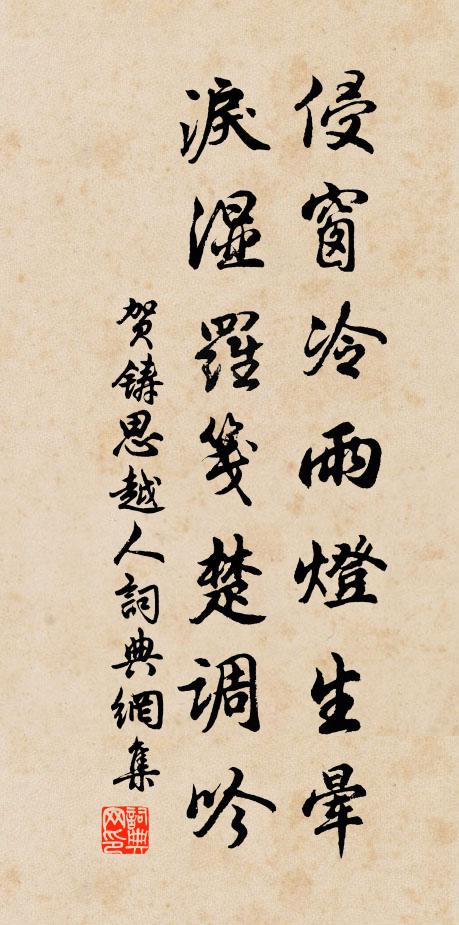 侵窗冷雨燈生暈
淚濕羅箋楚調吟
賀鑄思越人詞典網集
詞典网印